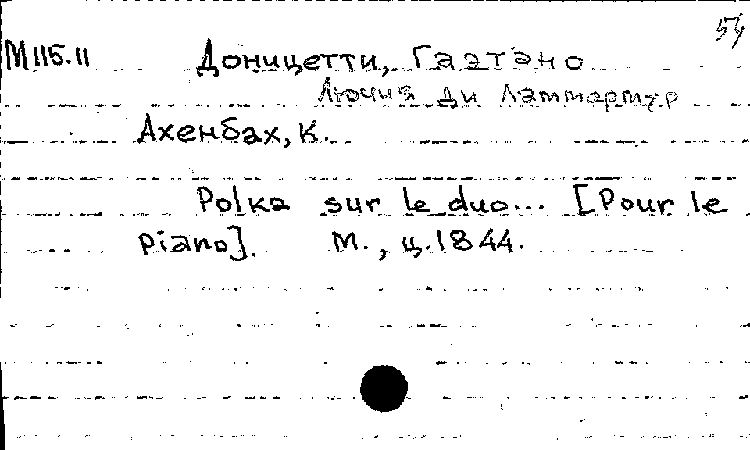 54
М115.11 Доницетти, Гаэтано
Лючия ди Ламмермур
Ахенбах, К.
Polka sur le duo... [Pour le
piano]. М., ц.1844.